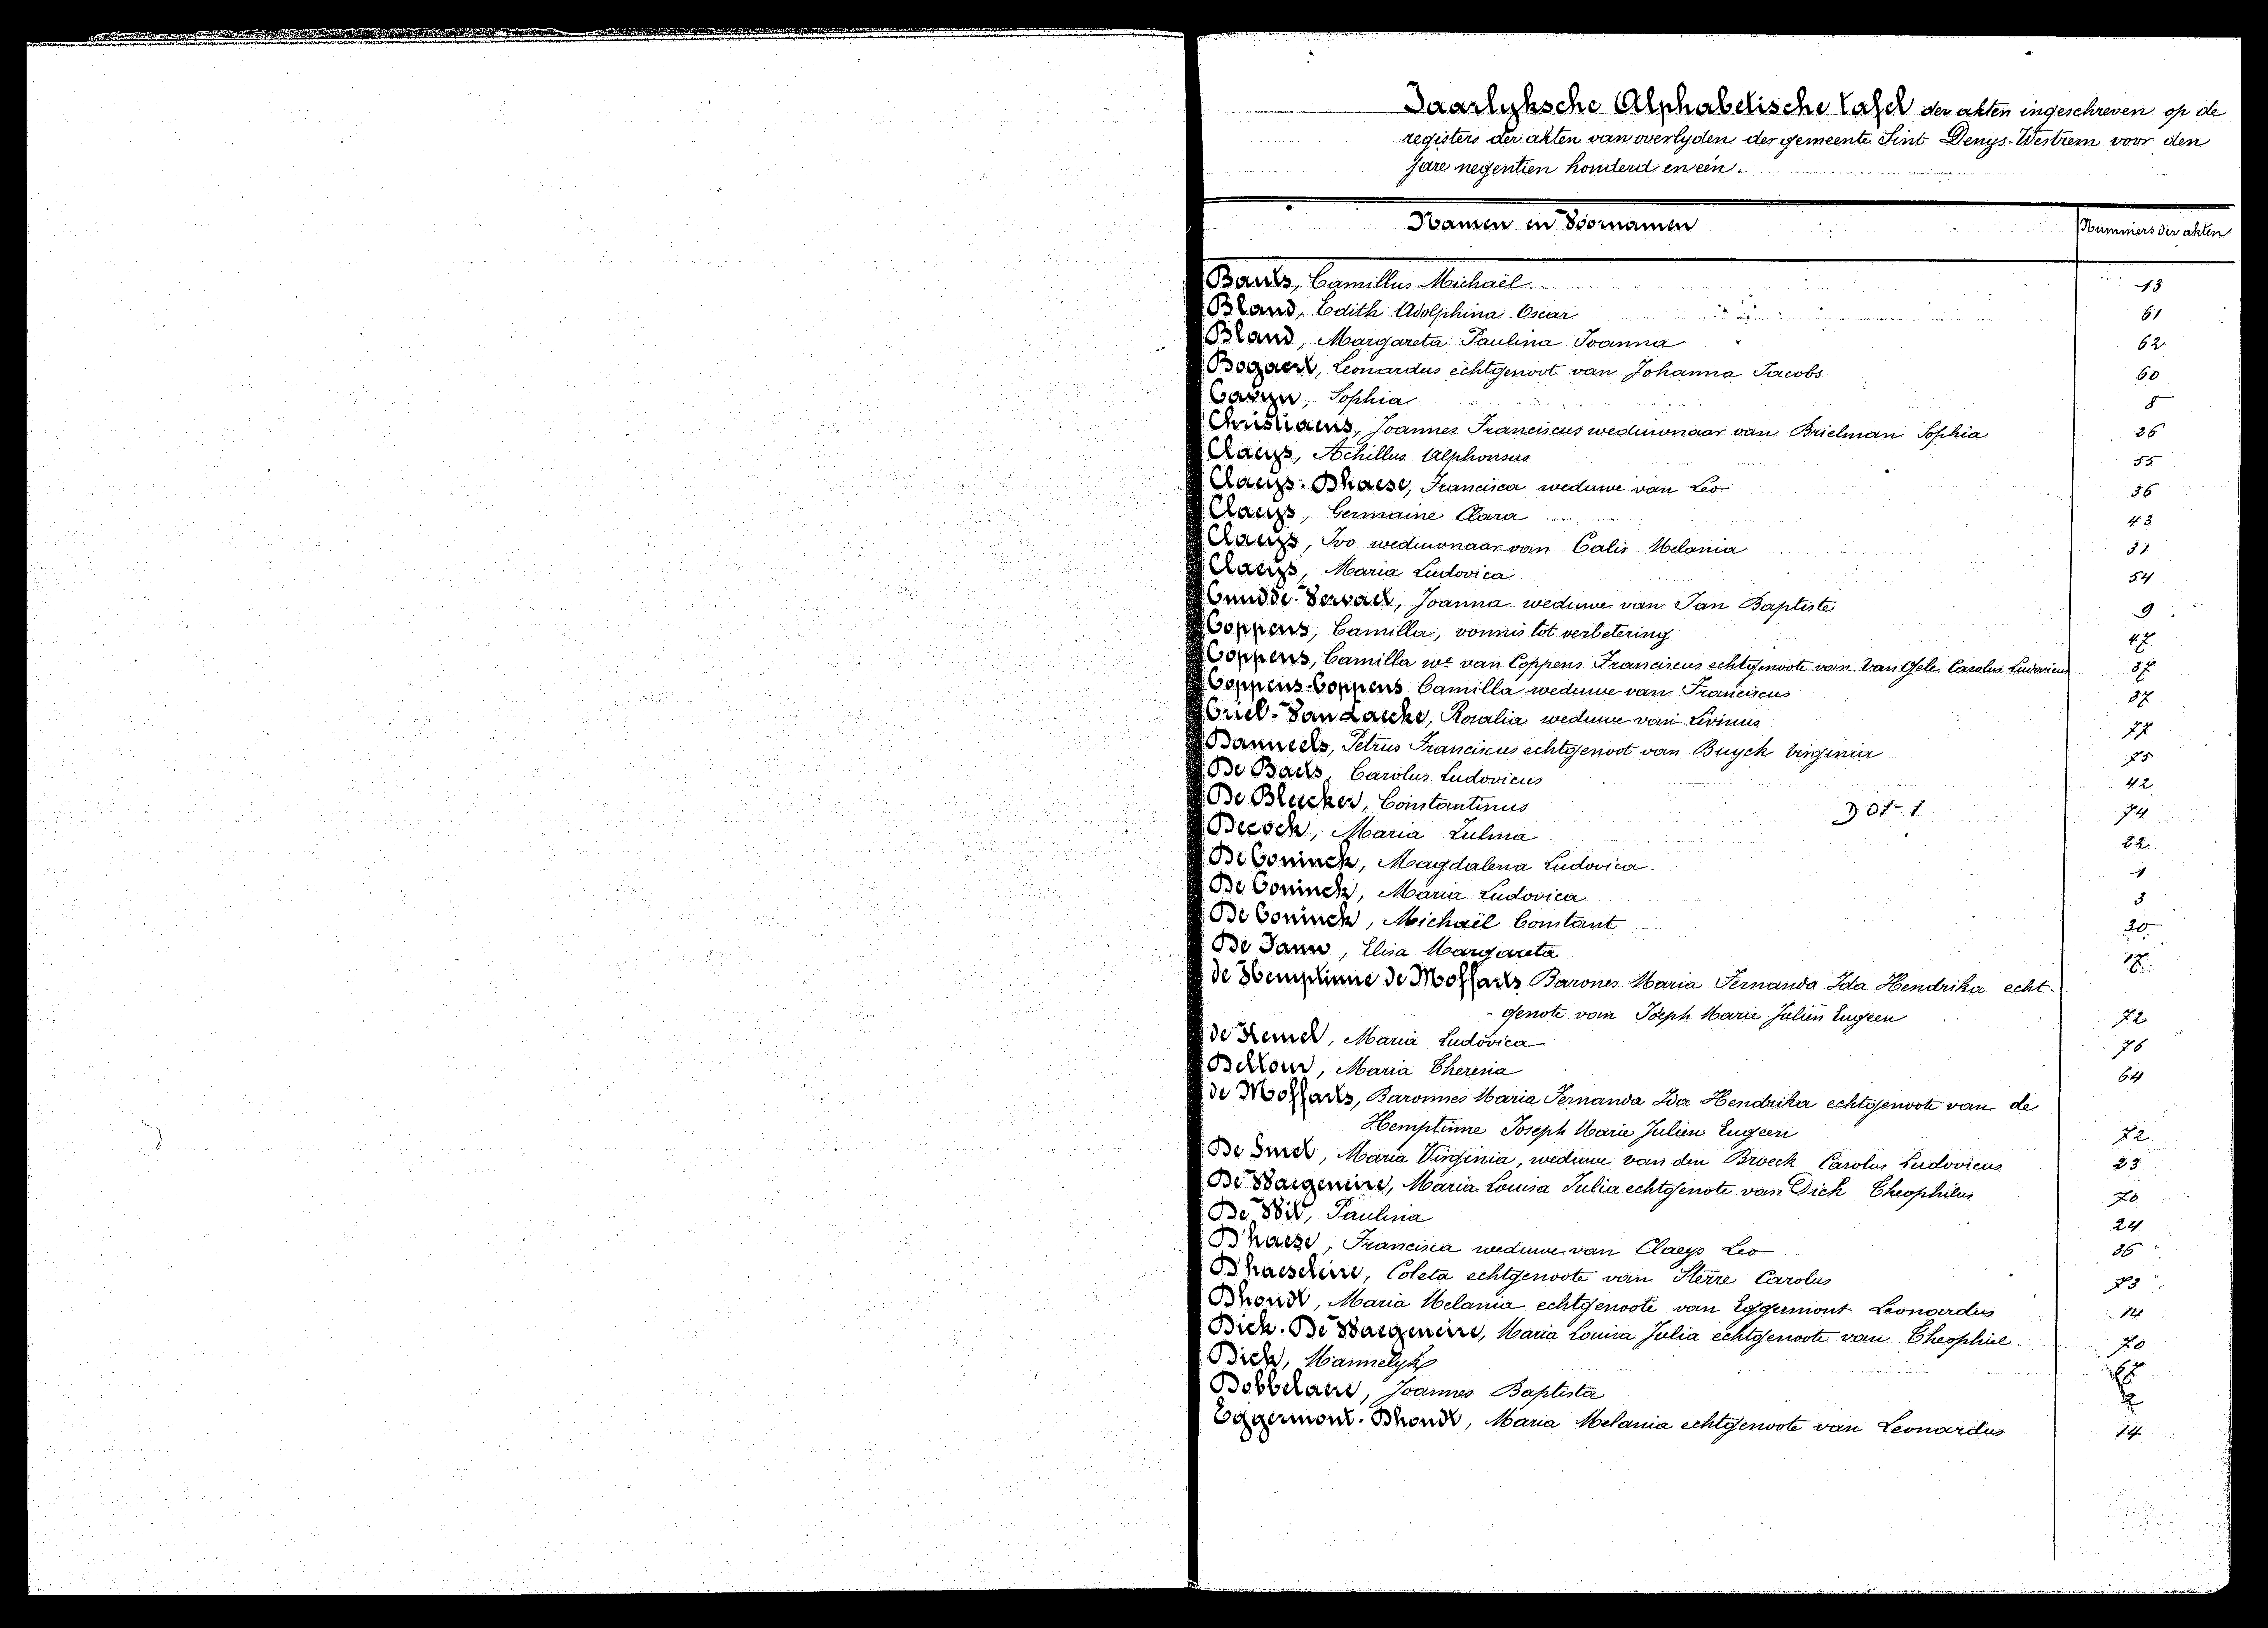 Jaarlyksche Alphabetische tafel der akten ingeschreven op de
registers der akten van overlyden der gemeente Sint Denys-Westrem voor den
jare negentien honderd en één.
Namen en Voornamen Nummers der akten
Bauts, Camillus Michaël 13
Bland, Edith Adolphina Oscar 61
Bland, Margareta Paulina Joanna 62
Bogaert, Leonardus echtgenoot van Johanna Jacobs 60
Casyn, Sophia 8
Christiaens, Joannes Franciscus weduwnaar van Brielman Sophia 26
Claeys, Achillus Alphonsus 55
Claeys-Dhaese, Francisca weduwe van Leo 36
Claeys, Germaine Clara 43
Claeys, Ivo weduwnaar van Calis Melania 31
Claeys, Maria Ludovica 54
Joanna weduwe van Jan Baptiste 9
Coppens, Camilla, vonnis tot verbetering 47
Coppens, Camilla we van Coppens Franciscus echtgenoote van Van Gele Carolus Ludovicus 37
Coppens-Coppens Camilla weduwe van Franciscus 37
Criel-Van Laecke, Rosalia weduwe van Livinus 77
Danneels, Petrus Franciscus echtgenoot van Buyck Virginia 75
De Baets, Carolus Ludovicus 42
De Bleecker, Constantinus 74
D 01-1
Decock, Maria Zulma 22
De Coninck, Magdalena Ludovica 1
De Coninck, Maria Ludovica 3
De Coninck, Michaël Constant 30
De Jann, Elisa Margareta 17
de Hemptinne de Moffarts Barones Maria Fernanda Ida Hendrika echt-
genote van Joseph Marie Julien Eugeen 72
de Kemel, Maria Ludovica 76
Deltour, Maria Theresia 64
de Moffarts, Baronnes Maria Fernanda Ida Hendrika echtgenoote van de
Hemptinne Joseph Marie Julien Eugeen 72
De Smet, Maria Virginia, weduwe van den Broeck Carolus Ludovicus 23
De Waegeneire, Maria Louisa Julia echtgenote van Dick Theophilus 70
De Wit, Paulina 24
D'haese, Francisca weduwe van Claeys Leo 36
D'haeseleire, Coleta echtgenoote van Sterre Carolus 73
Dhondt, Maria Melania echtgenoote van Eggermont Leonardus 14
Dick-De Waegeneire, Maria Louisa Julia echtgenoote van Theophiel 70
Dick, Mannelyk 67
Dobbelaere, Joannes Baptista 2
Eggermont-Dhondt, Maria Melania echtgenoote van Leonardus 14